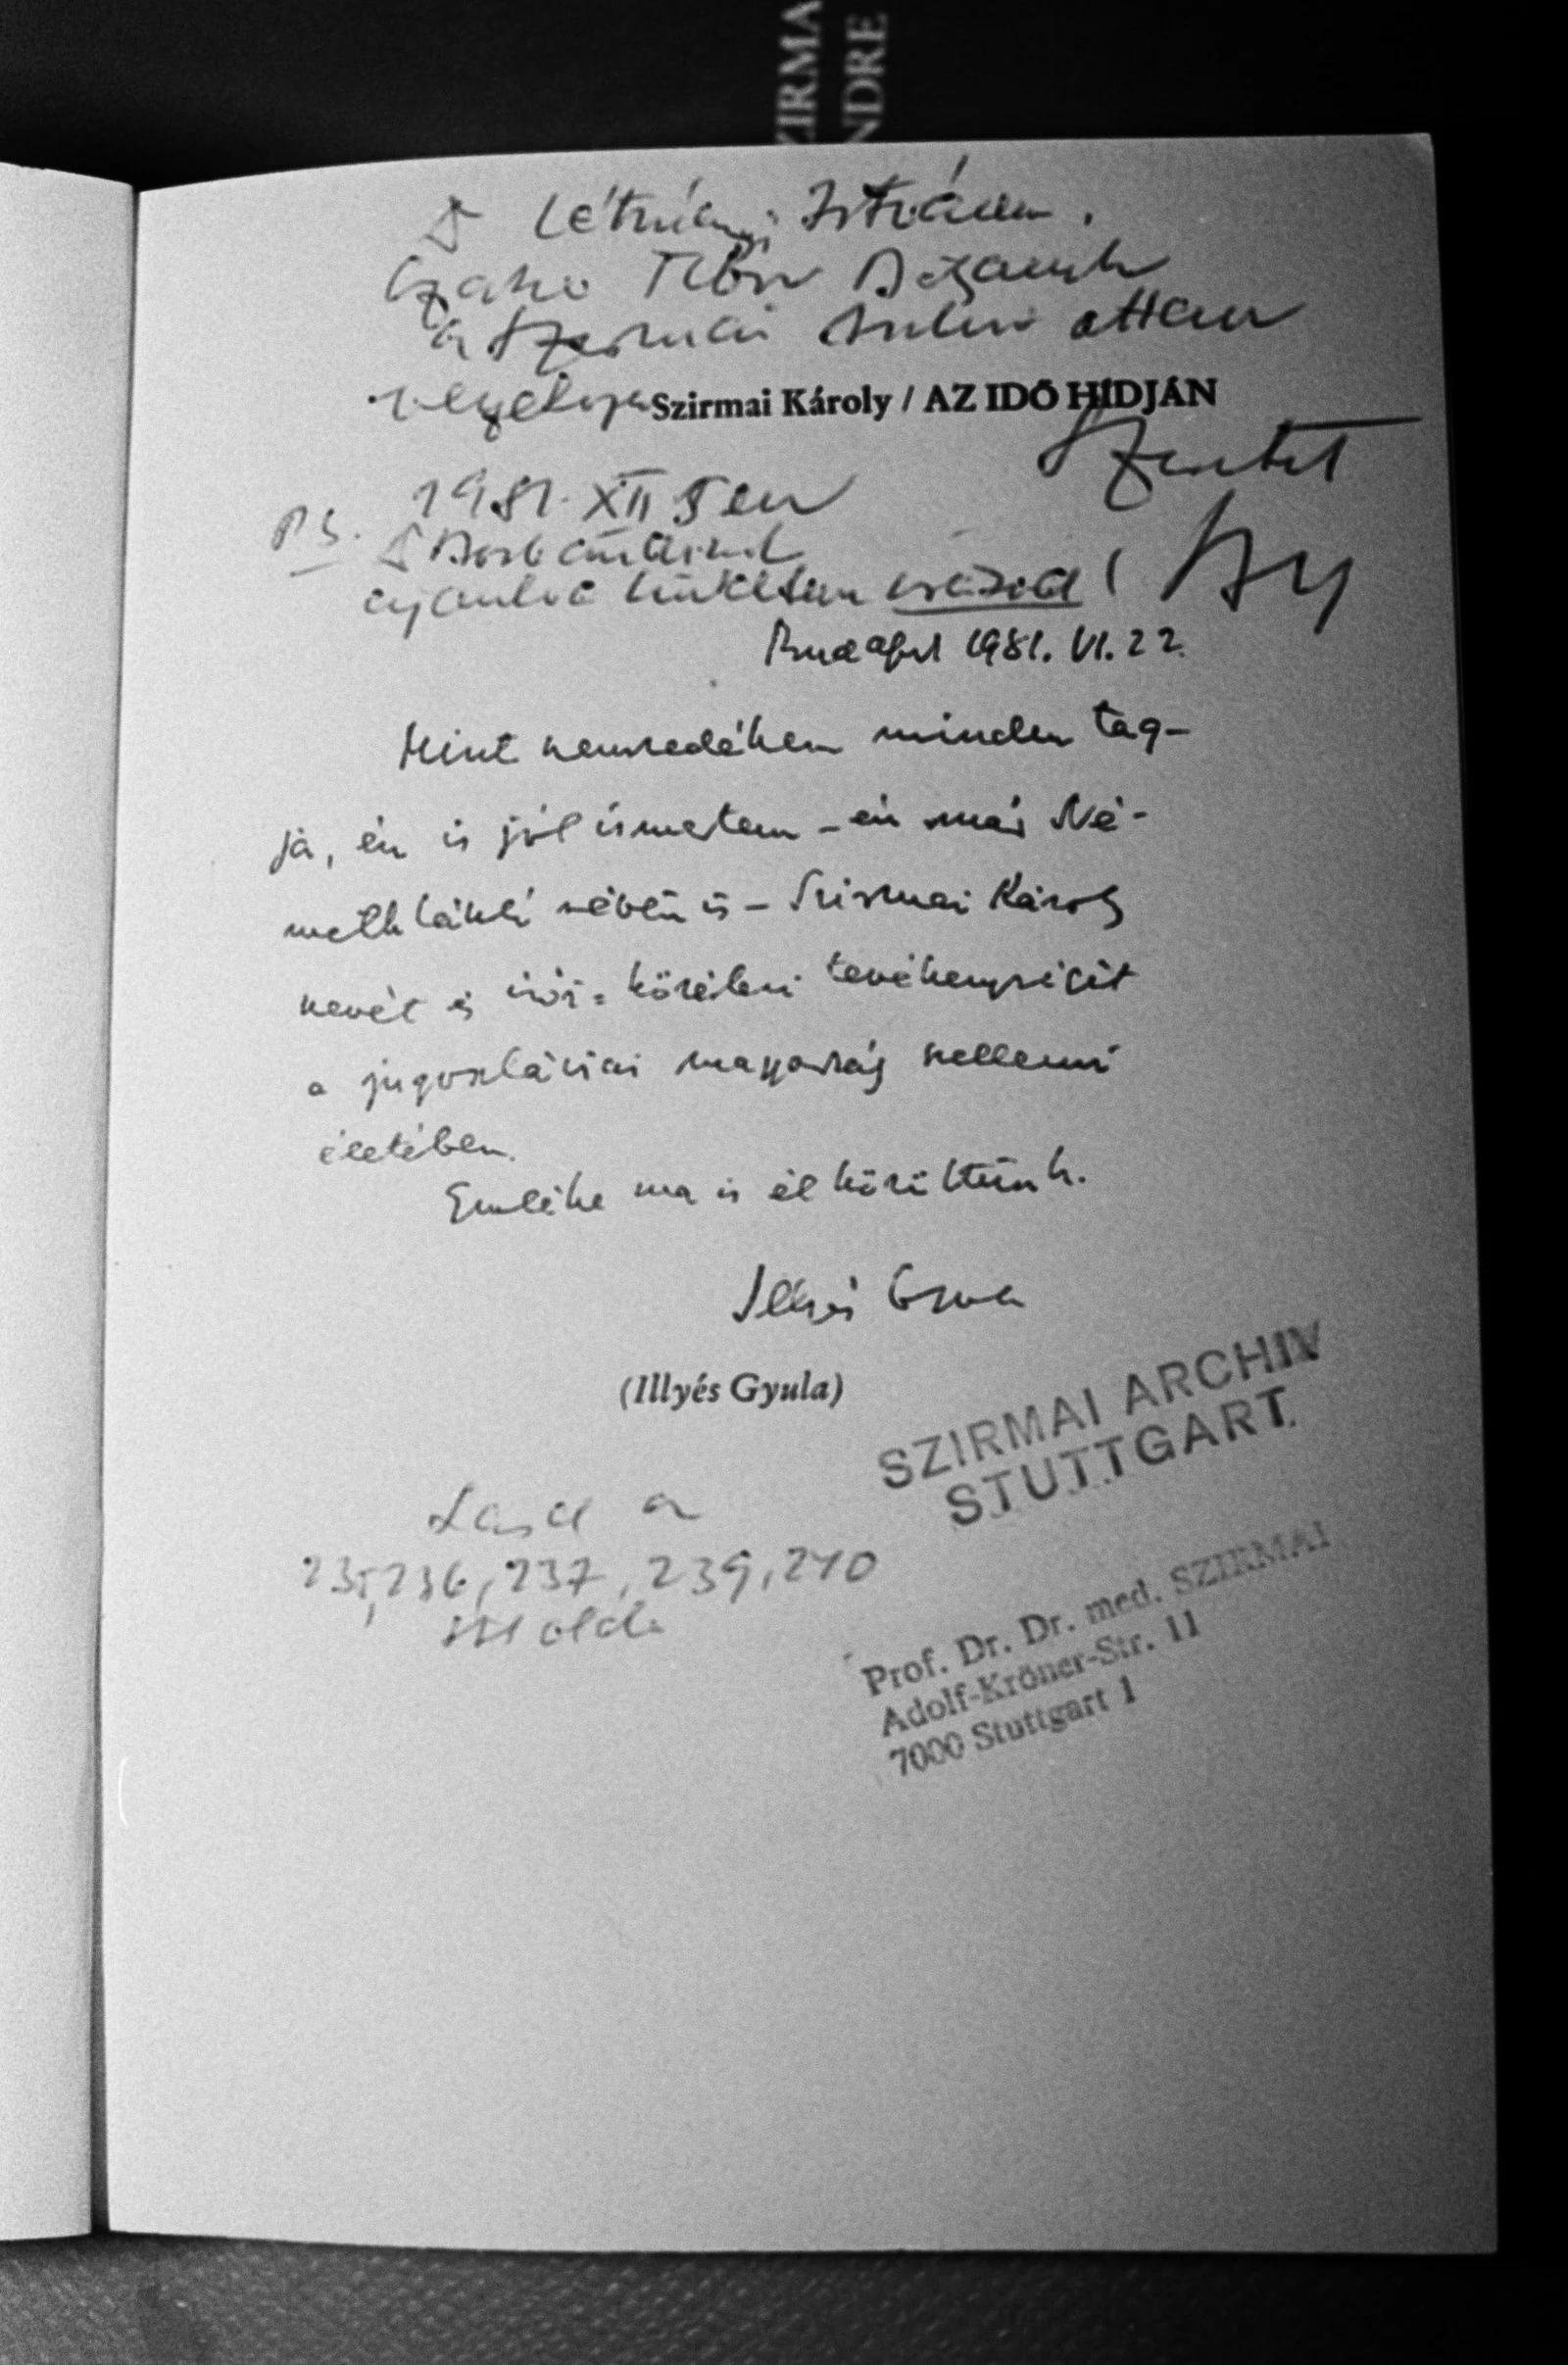 ZIRMA
NDRE
Létményi István
Tibor
a Szirmai
Szirmai Károly / AZ IDŐ HÍDJÁN
Szeretet
1981. XII 5 én
PS.
ajánlva küldtem
Budapest 1981. VI. 22.
Mint nemzedékem minden tag-
ja, én is jól ismertem – én már Né-
meth László révén is – Szirmai Károly
nevét és írói-közéleti tevékenységét
a jugoszláviai magyarság szellemi
életében.
Emléke ma is él körültünk.
Illyés Gyula
(Illyés Gyula)
SZIRMAI ARCHIV
STUTTGART.
Lásd a
235, 236, 237, 239, 240
oldal
Prof. Dr. Dr. med. SZIRMAI
Adolf-Kröner-Str. 11
7000 Stuttgart 1